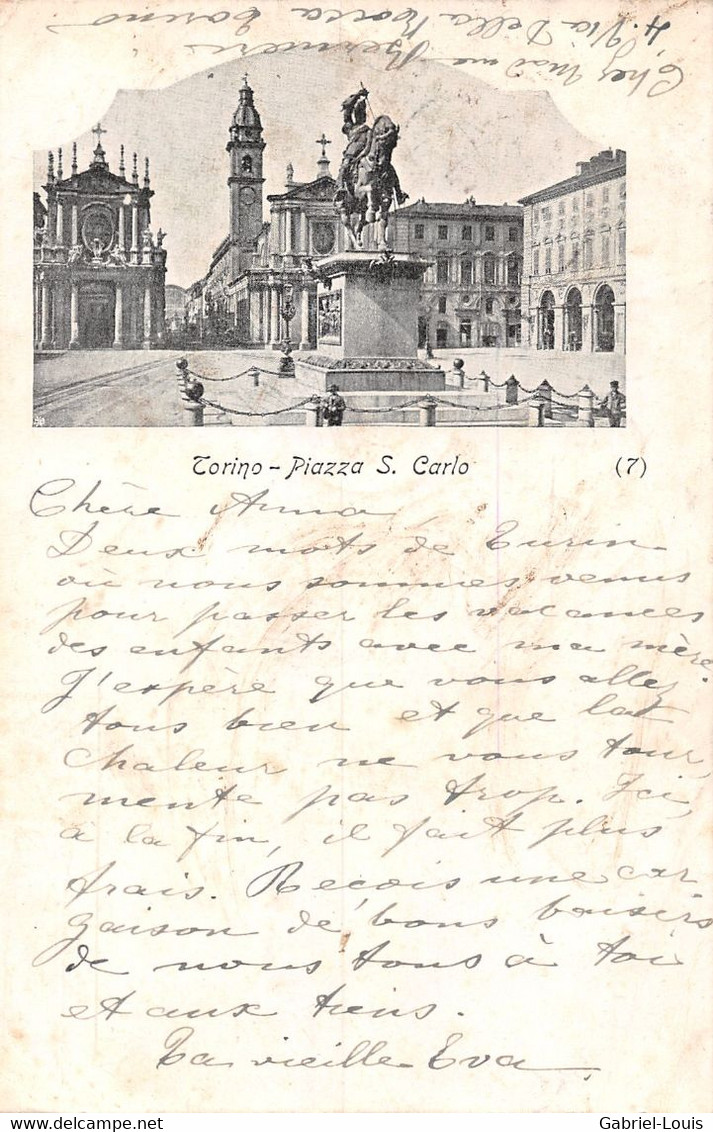 4. Via Della Rocca Torino
Chez Mad me Bernieri
Torino - Piazza S. Carlo (7)
Chère Anna,
Deux mots de Turin
où nous sommes venus
pour passer les vacances
des enfants avec ma mère.
J'espère que vous allez
tous bien et que la
chaleur ne vous tour,
mente pas trop. Ici,
à la fin, il fait plus
frais. Reçois une car
gaison de bons baisers
de nous tous à toi
et aux tiens.
Ta vieille Eva
Gabriel-Louis